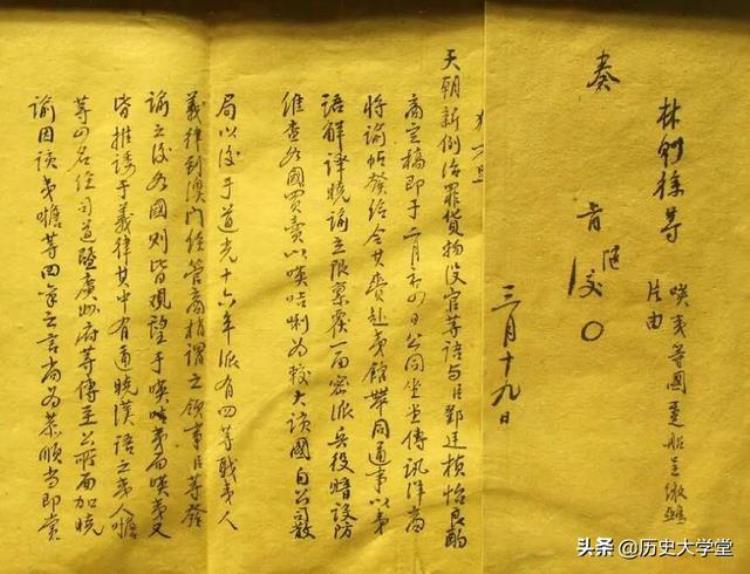 林則徐等
嘆夷等國躉船呈繳鴉
片由
奏
三月十九日
天朝新例治罪貨物没官等語与臣鄧廷楨怡良酌
商定稿即于二月初四日公同坐堂傳訊洋商
將諭帖發给令其賫赴夷館帶同通事以夷
語解译曉諭立限禀覆一面密派兵役暗設防
維查各國買賣以嘆咭唎為較大该國自公司散
局以後于道光十六年派有四等職夷人
義律到澳門经管商梢謂之領事臣等發
諭之後各國則皆觀望于嘆咭夷而嘆夷又
皆推诿于義律其中有通曉漢語之夷人噡
等四名经司道暨廣州府等傳至公所面加曉
諭因该夷噡等四夷之言尚為恭順當即賞
头条 @历史大学堂